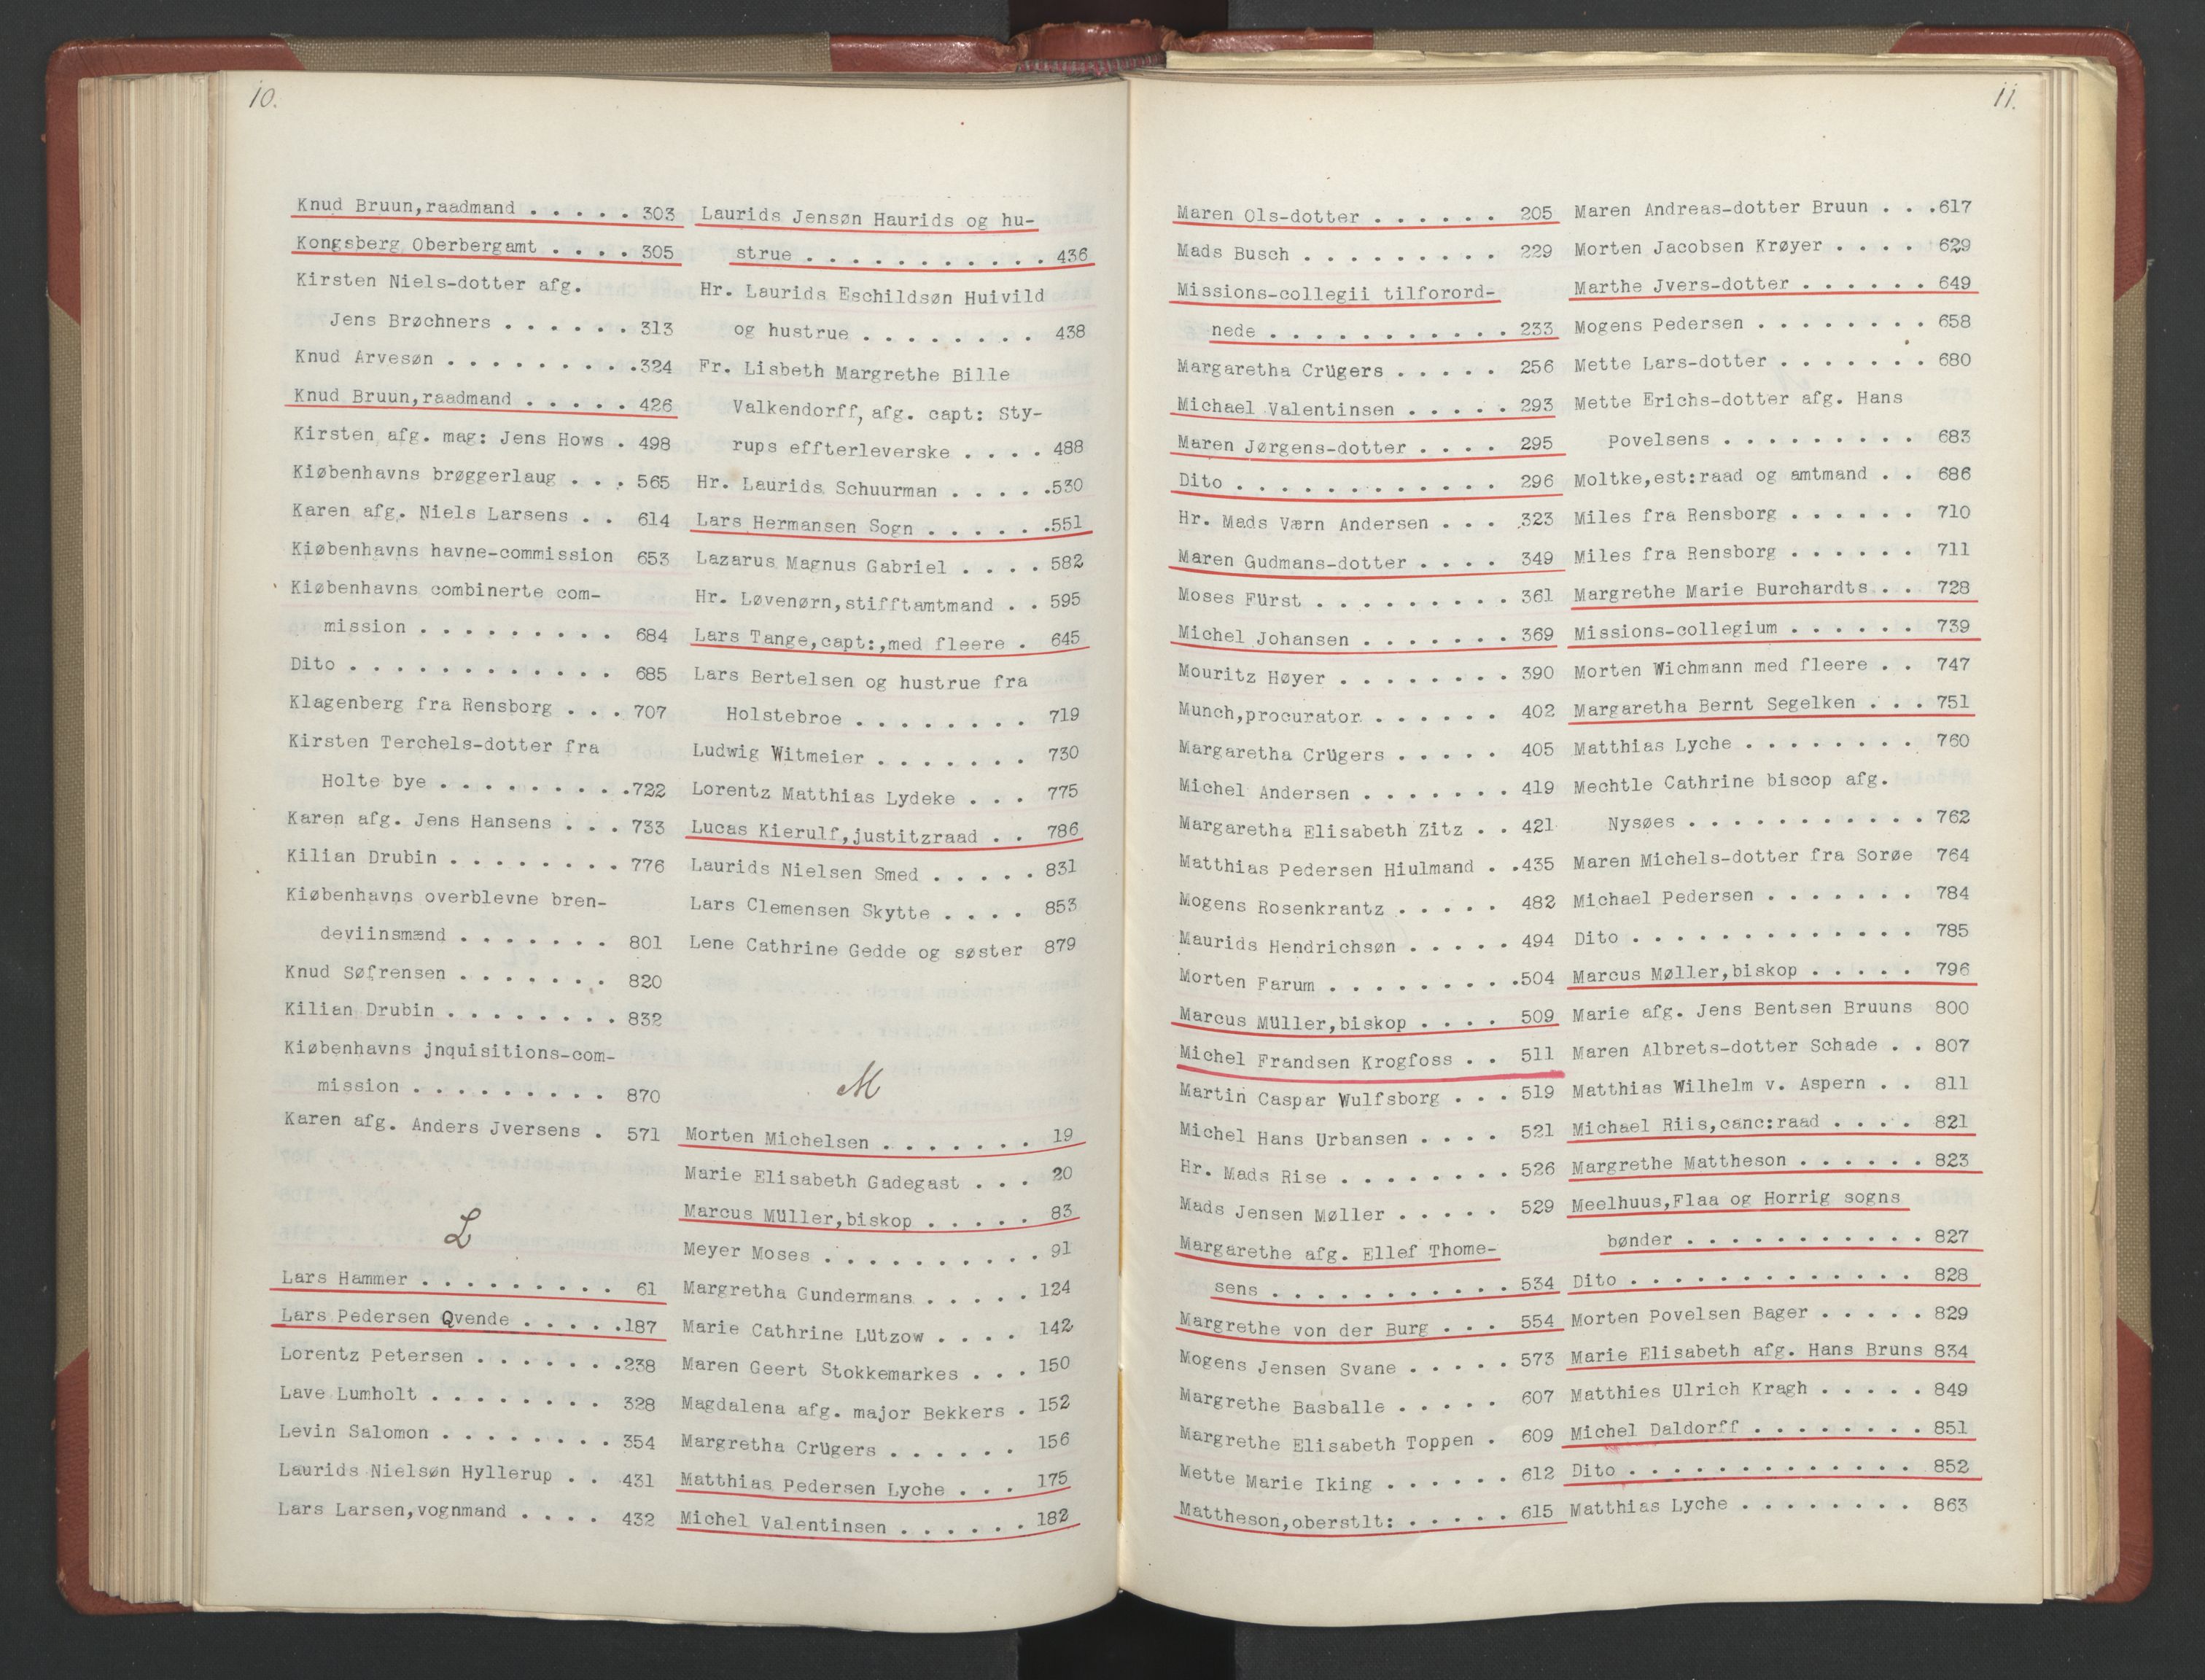 10.
Knud Bruun,raadmand . . . . . 303
Kongsberg Oberbergamt . . . . 305
Kirsten Niels-dotter afg.
Jens Brøchners . . . . . . 313
Knud Arvesøn . . . . . . . . .324
Knud Bruun,raadmand . . . . . 426
Kirsten afg. mag: Jens Hows . 498
Kiøbenhavns brøggerlaug . . . 565
Karen afg. Niels Larsens . . 614
Kiøbenhavns havne-commission 653
Kiøbenhavns combinerte com-
mission . . . . . . . . . 684
Dito . . . . . . . . . . . . 685
Klagenberg fra Rensborg . . . 707
Kirsten Terchels-dotter fra
Holte bye . . . . . . . . .722
Karen afg. Jens Hansens . . . 733
Kilian Drubin . . . . . . . . 776
Kiøbenhavns overblevne bren-
deviinsmænd . . . . . . . 801
Knud Søfrensen . . . . . . . 820
Kilian Drubin . . . . . . . . 832
Kiøbenhavns jnquisitions-com-
mission . . . . . . . . . 870
Karen afg. Anders Jversens . 571
L
Lars Hammer . . . . . . . . . 61
Lars Pedersen Qvende . . . . .187
Lorentz Petersen . . . . . . .238
Lave Lumholt . . . . . . . . 328
Levin Salomon . . . . . . . . 354
Laurids Nielsøn Hyllerup . . 431
Lars Larsen,vognmand . . . . 432
Laurids Jensøn Haurids og hu-
strue . . . . . . . . . . . 436
Hr. Laurids Eschildsøn Huivild
og hustrue . . . . . . . . 438
Fr. Lisbeth Margrethe Bille
Valkendorff, afg. capt: Sty-
rups effterleverske . . . . 488
Hr. Laurids Schuurman . . . . .530
Lars Hermansen Sogn . . . . . .551
Lazarus Magnus Gabriel . . . . 582
Hr. Løvenørn,stifftamtmand . . 595
Lars Tange,capt:,med fleere . 645
Lars Bertelsen og hustrue fra
Holstebroe . . . . . . . . 719
Ludwig Witmeier . . . . . . . 730
Lorentz Matthias Lydeke . . . 775
Lucas Kierulf,justitzraad . . 786
Laurids Nielsen Smed . . . . . 831
Lars Clemensen Skytte . . . . 853
Lene Cathrine Gedde og søster 879
M
Morten Michelsen . . . . . . . 19
Marie Elisabeth Gadegast . . . 20
Marcus Müller,biskop . . . . . 83
Meyer Moses . . . . . . . . . . 91
Margretha Gundermans . . . . . 124
Marie Cathrine Lützow . . . . 142
Maren Geert Stokkemarkes . . . 150
Magdalena afg. major Bekkers . 152
Margretha Crügers . . . . . . 156
Matthias Pedersen Lyche . . . 175
Michel Valentinsen . . . . . . 182
11.
Maren Ols-dotter . . . . . . 205
Mads Busch . . . . . . . . . 229
Missions-collegii tilforord-
nede . . . . . . . . . . . 233
Margaretha Crügers . . . . . 256
Michael Valentinsen . . . . . 293
Maren Jørgens-dotter . . . . 295
Dito . . . . . . . . . . . . 296
Hr. Mads Værn Andersen . . . 323
Maren Gudmans-dotter . . . . 349
Moses Fürst . . . . . . . . . 361
Michel Johansen . . . . . . . 369
Mouritz Høyer . . . . . . . . 390
Munch,procurator . . . . . . 402
Margaretha Crügers . . . . . 405
Michel Andersen . . . . . . . 419
Margaretha Elisabeth Zitz . . 421
Matthias Pedersen Hiulmand . .435
Mogens Rosenkrantz . . . . . 482
Maurids Hendrichsøn . . . . . 494
Morten Farum . . . . . . . . .504
Marcus Müller,biskop . . . . 509
Michel Frandsen Krogfoss . . 511
Martin Caspar Wulfsborg . . . 519
Michel Hans Urbansen . . . . 521
Hr. Mads Rise . . . . . . . . 526
Mads Jensen Møller . . . . . 529
Margarethe afg. Ellef Thome-
sens . . . . . . . . . . . 534
Margrethe von der Burg . . . 554
Mogens Jensen Svane . . . . . 573
Margrethe Basballe . . . . . 607
Margrethe Elisabeth Toppen . 609
Mette Marie Iking . . . . . . 612
Mattheson,oberstlt: . . . . . 615
Maren Andreas-dotter Bruun . . .617
Morten Jacobsen Krøyer . . . . 629
Marthe Jvers-dotter . . . . . . 649
Mogens Pedersen . . . . . . . . 658
Mette Lars-dotter . . . . . . . 680
Mette Erichs-dotter afg. Hans
Povelsens . . . . . . . . . 683
Moltke,est:raad og amtmand . . 686
Miles fra Rensborg . . . . . . 710
Miles fra Rensborg . . . . . . 711
Margrethe Marie Burchardts . . 728
Missions-collegium . . . . . . 739
Morten Wichmann med fleere . . 747
Margaretha Bernt Segelken . . . 751
Matthias Lyche . . . . . . . . 760
Mechtle Cathrine biscop afg.
Nysøes . . . . . . . . . . . 762
Maren Michels-dotter fra Sorøe 764
Michael Pedersen . . . . . . . 784
Dito . . . . . . . . . . . . . 785
Marcus Møller,biskop . . . . . 796
Marie afg. Jens Bentsen Bruuns 800
Maren Albrets-dotter Schade . . 807
Matthias Wilhelm v. Aspern . . 811
Michael Riis,canc:raad . . . . 821
Margrethe Mattheson . . . . . . 823
Meelhuus,Flaa og Horrig sogns
bønder . . . . . . . . . . . 827
Dito . . . . . . . . . . . . . 828
Morten Povelsen Bager . . . . . 829
Marie Elisabeth afg. Hans Bruns 834
Matthies Ulrich Kragh . . . . . 849
Michel Daldorff . . . . . . . . 851
Dito . . . . . . . . . . . . . 852
Matthias Lyche . . . . . . . . 863